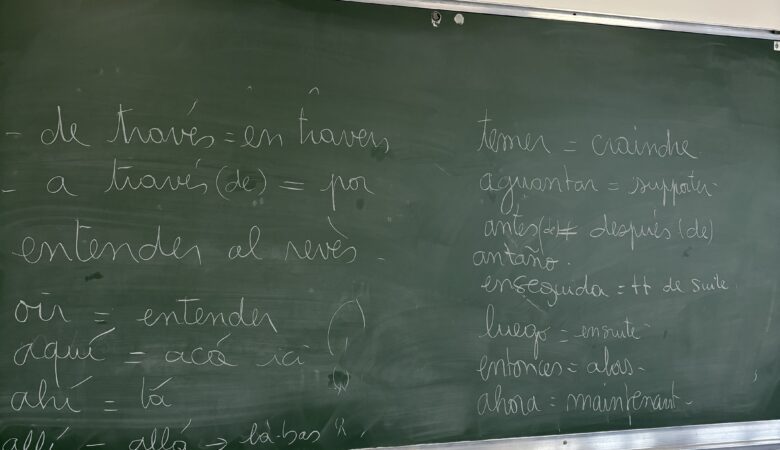 - de través = en travers
- a través (de) = por
entender al revés -
oír = entender
aquí = acá ici
ahí = là
allí - allá → là-bas
temer = craindre
aguantar = supporter
antes (de) ≠ después (de)
antaño.
enseguida = tt de suite
luego = ensuite
entonces = alors
ahora = maintenant